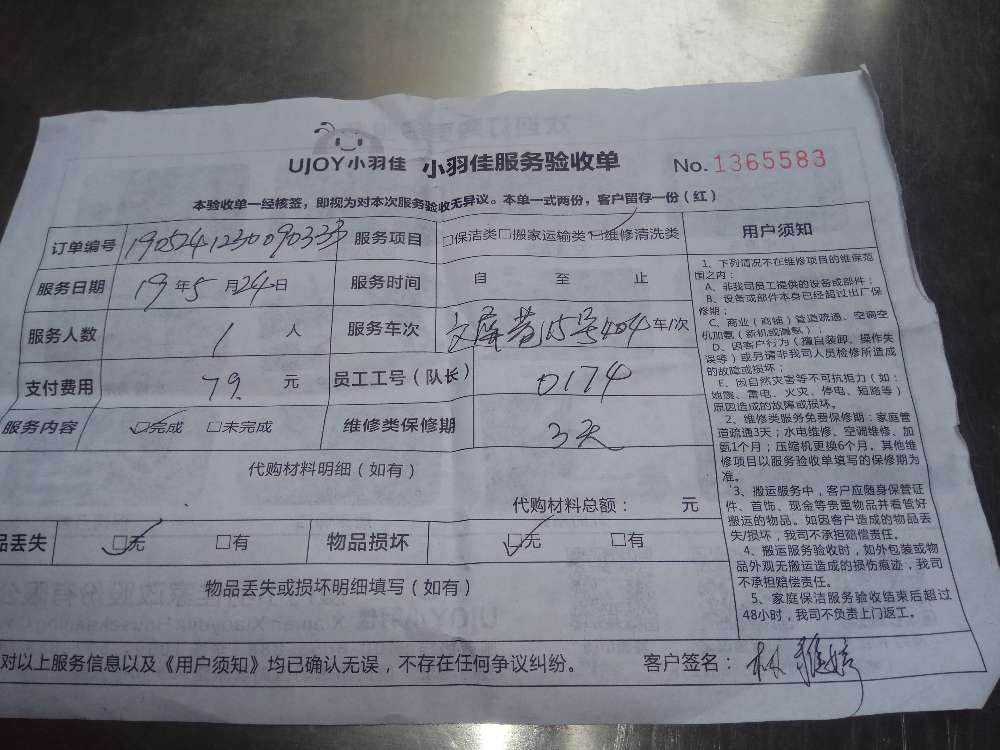 UJOY小羽佳 小羽佳服务验收单 No.1365583
本验收单一经核签，即视为对本次服务验收无异议。本单一式两份，客户留存一份（红）
订单编号 1905241230090333 服务项目 □保洁类□搬家运输类□维修清洗类
服务日期 19年5月24日 服务时间 自 至 止
服务人数 1 人 服务车次 文屏巷15号404 车/次
支付费用 79. 元 员工工号（队长） 0174
服务内容 □完成 □未完成 维修类保修期 3天
代购材料明细（如有）
代购材料总额： 元
品丢失 □无 □有 物品损坏 □无 □有
物品丢失或损坏明细填写（如有）
对以上服务信息以及《用户须知》均已确认无误，不存在任何争议纠纷。 客户签名：林雅婷
用户须知
1、下列情况不在维修项目的维保范
围之内：
A、非我司员工提供的设备或部件；
B、设备或部件本身已经超过出厂保
修期；
C、商业（商铺）管道疏通、空调空
机加氨（新机或漏氨）；
D、因客户行为（擅自装卸、操作失
误等）或另请非我司人员检修所造成
的故障或损坏；
E、因自然灾害等不可抗拒力（如：
地震、雷电、火灾、停电、短路等）
原因造成的故障或损坏。
2、维修类服务免费保修期：家庭管
道疏通3天；水电维修、空调维修、加
氨1个月；压缩机更换6个月。其他维
修项目以服务验收单填写的保修期为
准。
3、搬运服务中，客户应随身保管证
件、首饰、现金等贵重物品并看管好
搬运的物品。如因客户造成的物品丢
失/损坏，我司不承担赔偿责任。
4、搬运服务验收时，如外包装或物
品外观无搬运造成的损伤痕迹，我司
不承担赔偿责任。
5、家庭保洁服务验收结束后超过
48小时，我司不负责上门返工。